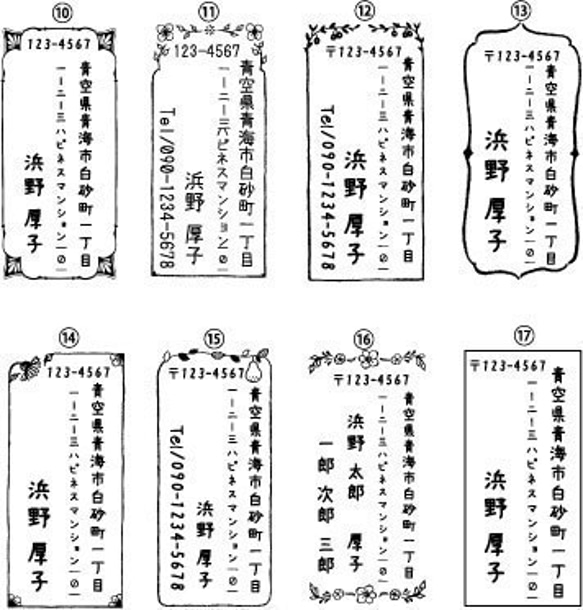 ⑩
123-4567
青空県青海市白砂町一丁目
一ー二ー三ハピネスマンション一〇一
浜野 厚子
⑪
123-4567
青空県青海市白砂町一丁目
一ー二ー三ハピネスマンション一〇一
浜野 厚子
Tel/090-1234-5678
⑫
〒123-4567
青空県青海市白砂町一丁目
一ー二ー三ハピネスマンション一〇一
浜野 厚子
Tel/090-1234-5678
⑬
〒123-4567
青空県青海市白砂町一丁目
一ー二ー三ハピネスマンション一〇一
浜野 厚子
⑭
123-4567
青空県青海市白砂町一丁目
一ー二ー三ハピネスマンション一〇一
浜野 厚子
⑮
〒123-4567
青空県青海市白砂町一丁目
一ー二ー三ハピネスマンション一〇一
浜野 厚子
Tel/090-1234-5678
⑯
〒123-4567
青空県青海市白砂町一丁目
一ー二ー三ハピネスマンション一〇一
浜野 太郎 厚子
一郎 次郎 三郎
⑰
〒123-4567
青空県青海市白砂町一丁目
一ー二ー三ハピネスマンション一〇一
浜野 厚子